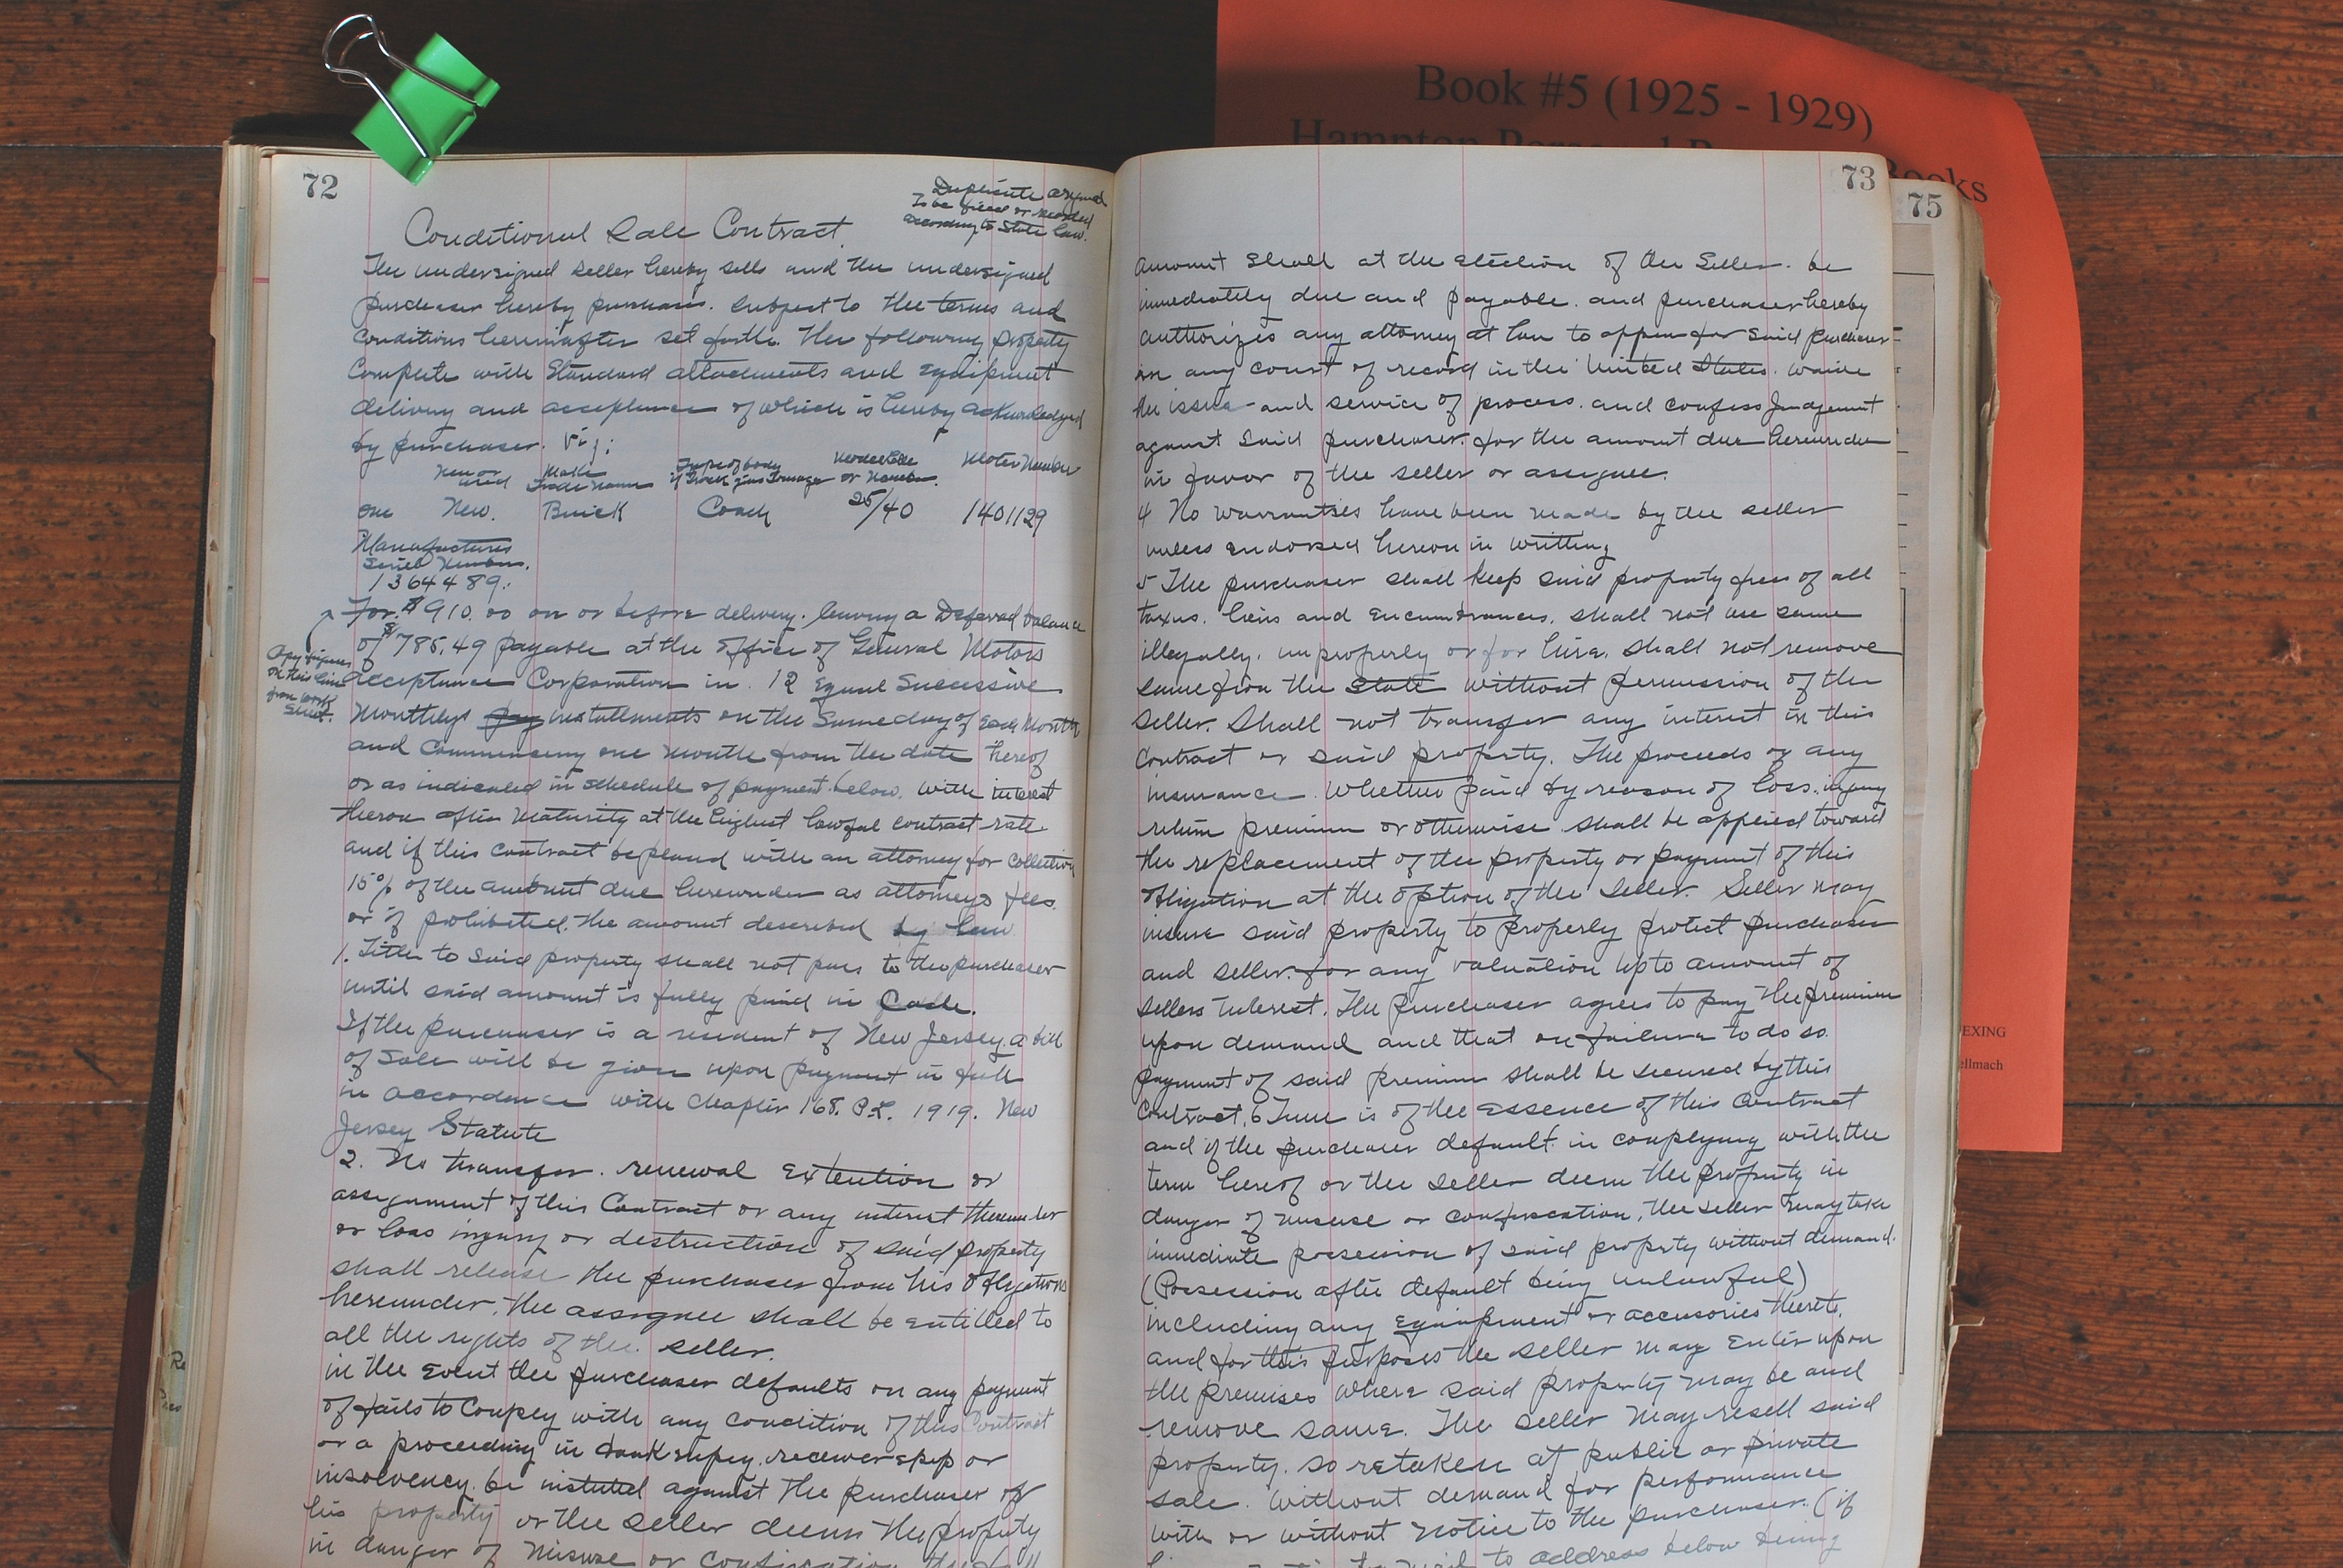 Book #5 (1925 - 1929)
Hampton Books
72
Duplicate
To be filed or recorded
according to State Law.
Conditional Sale Contract.
The undersigned seller hereby sells and the undersigned
purchaser hereby purchases. subject to the terms and
Conditions hereinafter set forth. The following property
Complete with Standard attachments and Equipment
delivery and acceptance of which is hereby acknowledged
by purchaser. Viz:
New or used Make Trade Name Type of body if Truck give Tonnage Model Motor Number
or Number.
one New. Buick Coach 25/40 1401129
Manufactures
Serial Number.
1364489.
For $910.00 on or before delivery. leaving a Deferred balance
of $785.49 payable at the office of General Motors
Acceptance Corporation in 12 Equal Successive
Copy figures
on this line
from work
sheet.
Monthly pay installments on the Same day of Each Month
and Commencing one month from the date hereof
or as indicated in schedule of payment below. with interest
thereon after maturity at the highest lawful contract rate
and if this contract be placed with an attorney for collection
15% of the amount due hereunder as attorneys fees.
or if prohibited. the amount described by law
1. Title to said property shall not pass to the purchaser
until said amount is fully paid in Cash.
If the purchaser is a resident of New Jersey. a bill
of sale will be given upon payment in full
in accordance with Chapter 168. P.L. 1919. New
Jersey Statute
2. No transfer. renewal Extention or
assignment of this Contract or any interest thereunder
or loss injury or destruction of said property
shall release the purchaser from his obligations
hereunder. The assignee shall be entitled to
all the rights of the seller.
in the Event the purchaser defaults on any payment
of fails to Comply with any condition of this Contract
or a proceeding in bankrupcy. receivership or
insolvency. be instuted against the purchaser of
his property or the seller deems the property
in danger of misuse or confiscation the full
73
amount shall at the election of the Seller. be
immediately due and payable. and purchaser hereby
authorizes any attorney at law to appear for said purchaser
in any court of record in the United States. waive
the issue and service of process. and confess Judgement
against said purchaser. for the amount due hereunder
in favor of the seller or assignee.
4 No warranties have been made by the seller
unless endorsed hereon in writting
5 The purchaser shall keep said property free of all
taxes. liens and Encumbrances. shall not use same
illegally. improperly or for hire. shall not remove
same from the State without permission of the
Seller. Shall not transfer any interest in this
Contract or said property. The proceeds of any
insurance. Whether paid by reason of loss. injury
return premium or otherwise shall be applied toward
the replacement of the property or payment of this
obligation at the option of the seller. Seller may
insure said property to properly protect purchaser
and seller. for any valuation up to amount of
Sellers Interest. The purchaser agrees to pay the premium
upon demand and that on failure to do so.
payment of said premium shall be secured by this
Contract. 6 Time is of the essence of this Contract
and if the purchaser default in complying with the
term hereof or the seller deem the property in
danger of misuse or confiscation, the seller may take
immediate possession of said property without demand.
(Possession after default being unlawful)
including any Equipment or accessories thereto.
and for this purposes the seller may Enter upon
the premises where said property may be and
remove same. The seller may resell said
property. so retaken at public or private
sale. without demand for performance
with or without notice to the purchaser. (if
to address below being
75
EXING
ellmach